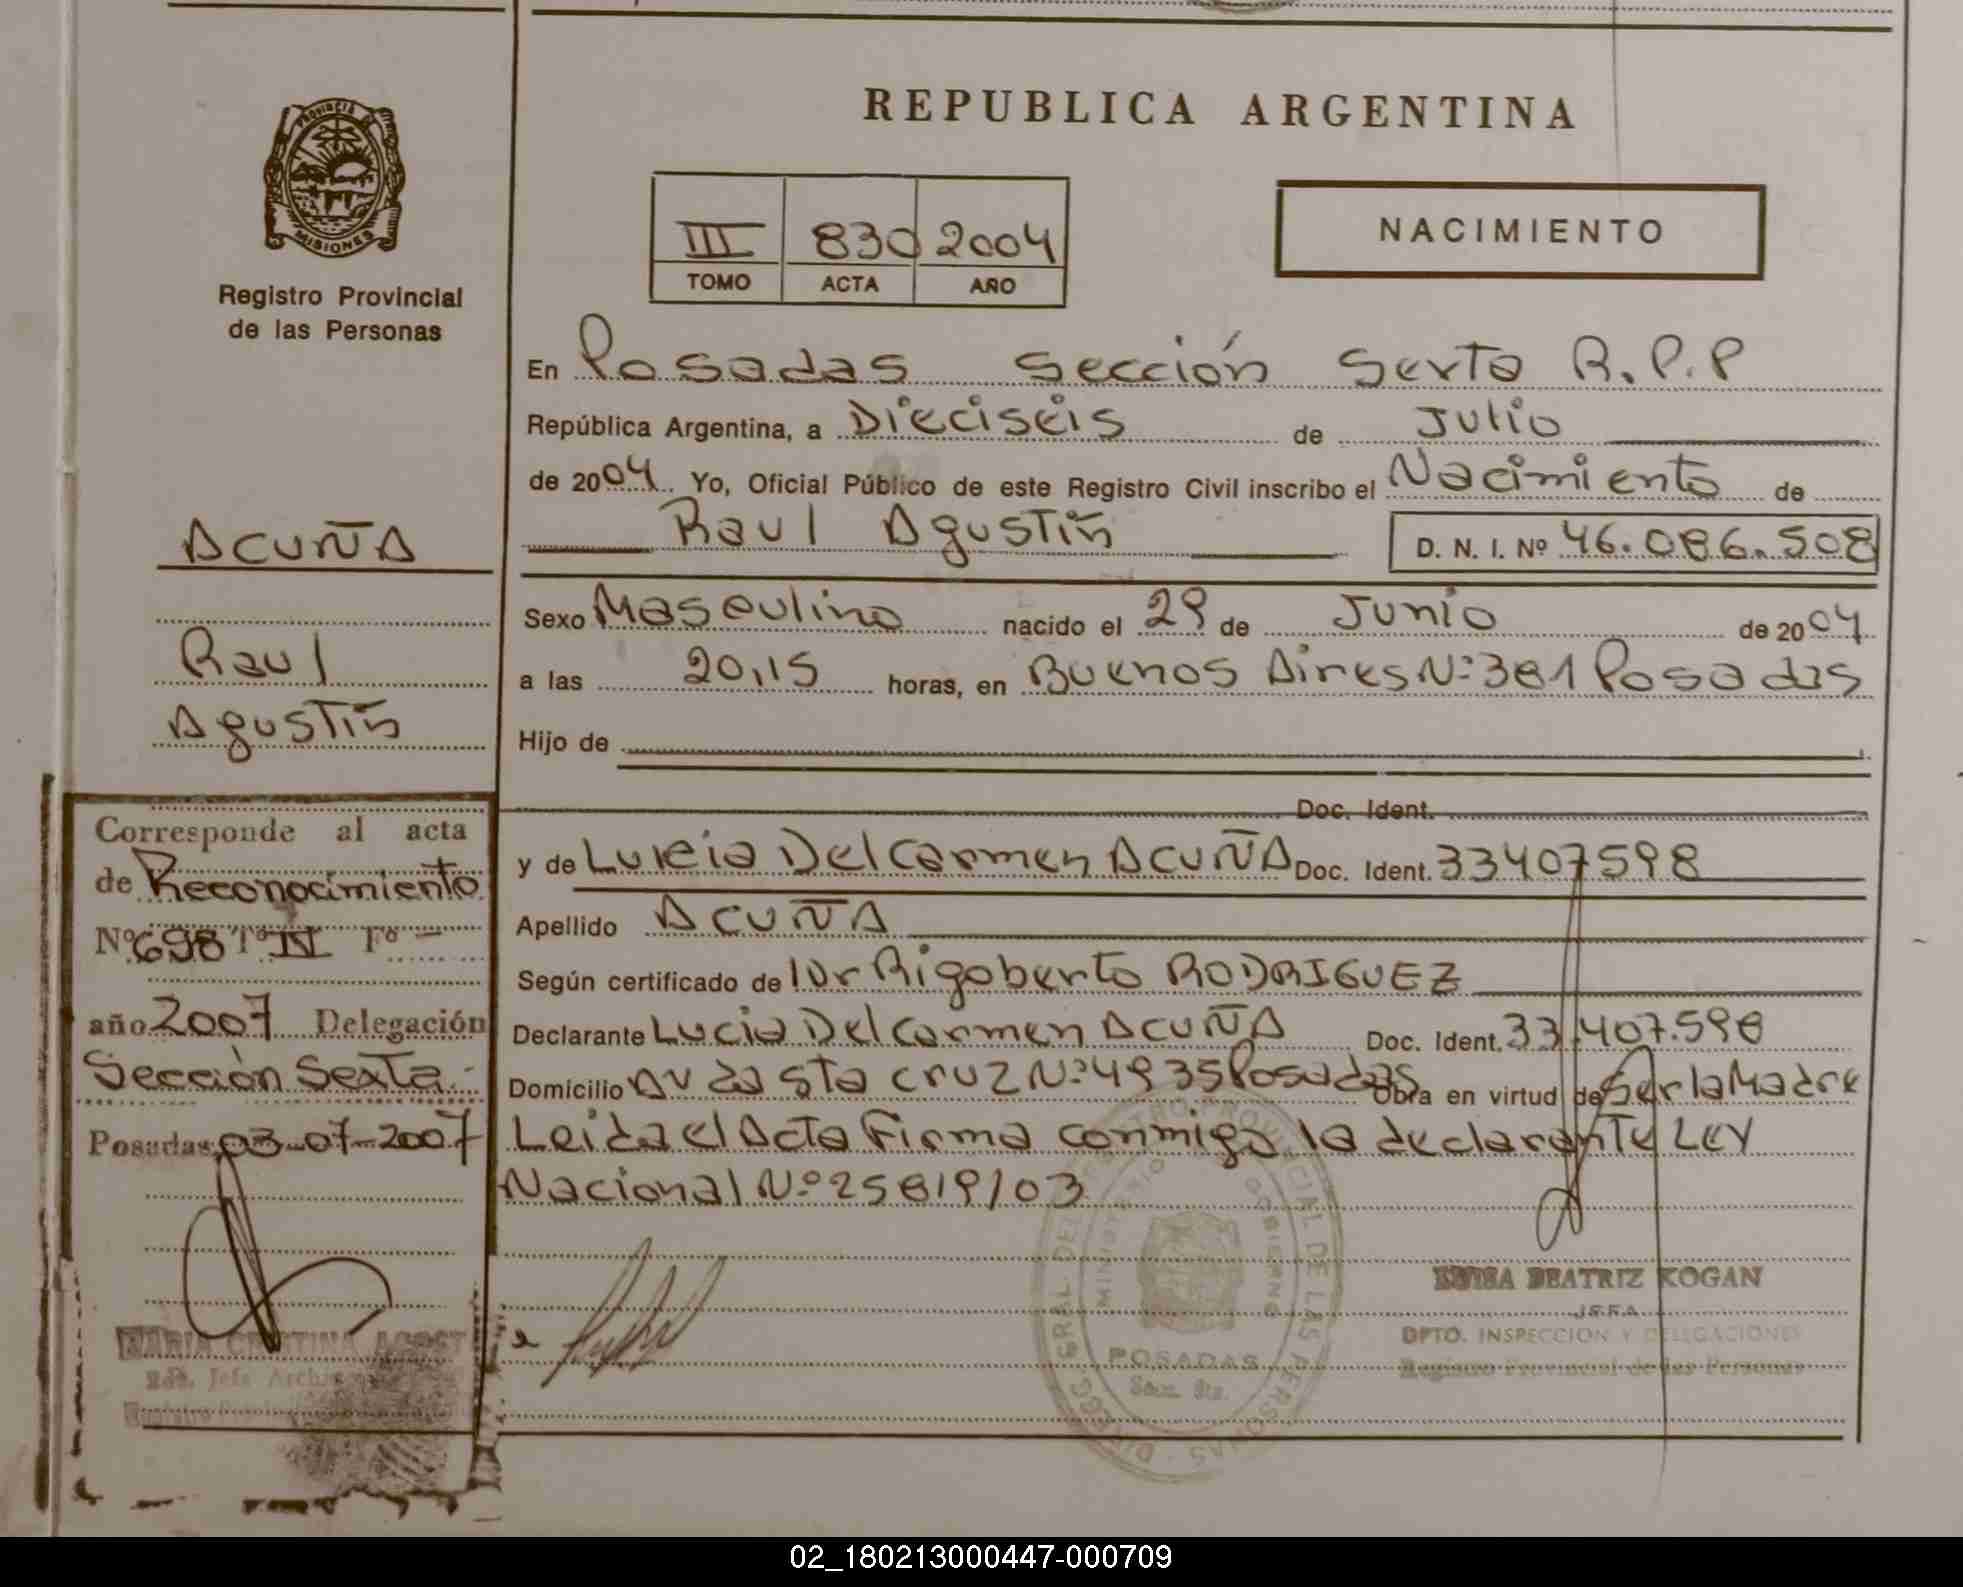 REPUBLICA ARGENTINA
PROVINCIA DE
MISIONES
Registro Provincial
de las Personas
III 830 2004
TOMO ACTA AÑO
NACIMIENTO
En Posadas Sección Sexta R.P.P
República Argentina, a Dieciseis de Julio
de 2004 Yo, Oficial Público de este Registro Civil inscribo el Nacimiento de
Raul Agustín D. N. I. Nº 46.086.508
Sexo Masculino nacido el 29 de Junio de 2004
a las 20,15 horas, en Buenos Aires Nº 381 Posadas
Hijo de
Doc. Ident.
y de Lucia Del Carmen ACUÑA Doc. Ident. 33407598
Apellido ACUÑA
Según certificado de Dr Rigoberto RODRIGUEZ
Declarante Lucia Del Carmen ACUÑA Doc. Ident. 33.407.598
Domicilio Av da Sta Cruz Nº 4935 Posadas Obra en virtud de Ser la Madre
Leida el Acta Firma conmigo la declarante LEY
Nacional Nº 25819/03
ACUÑA
Raul
Agustín
Corresponde al acta
de Reconocimiento
Nº 698 Tº IV Fº -
año 2007 Delegación
Sección Sexta.
Posadas 03-07-2007
MARIA CRISTINA
Jefe
MINISTERIO DE GOBIERNO
POSADAS
LUISA BEATRIZ KOGAN
JEFA
DPTO. INSPECCION Y DELEGACIONES
Registro Provincial de las Personas
02_180213000447-000709